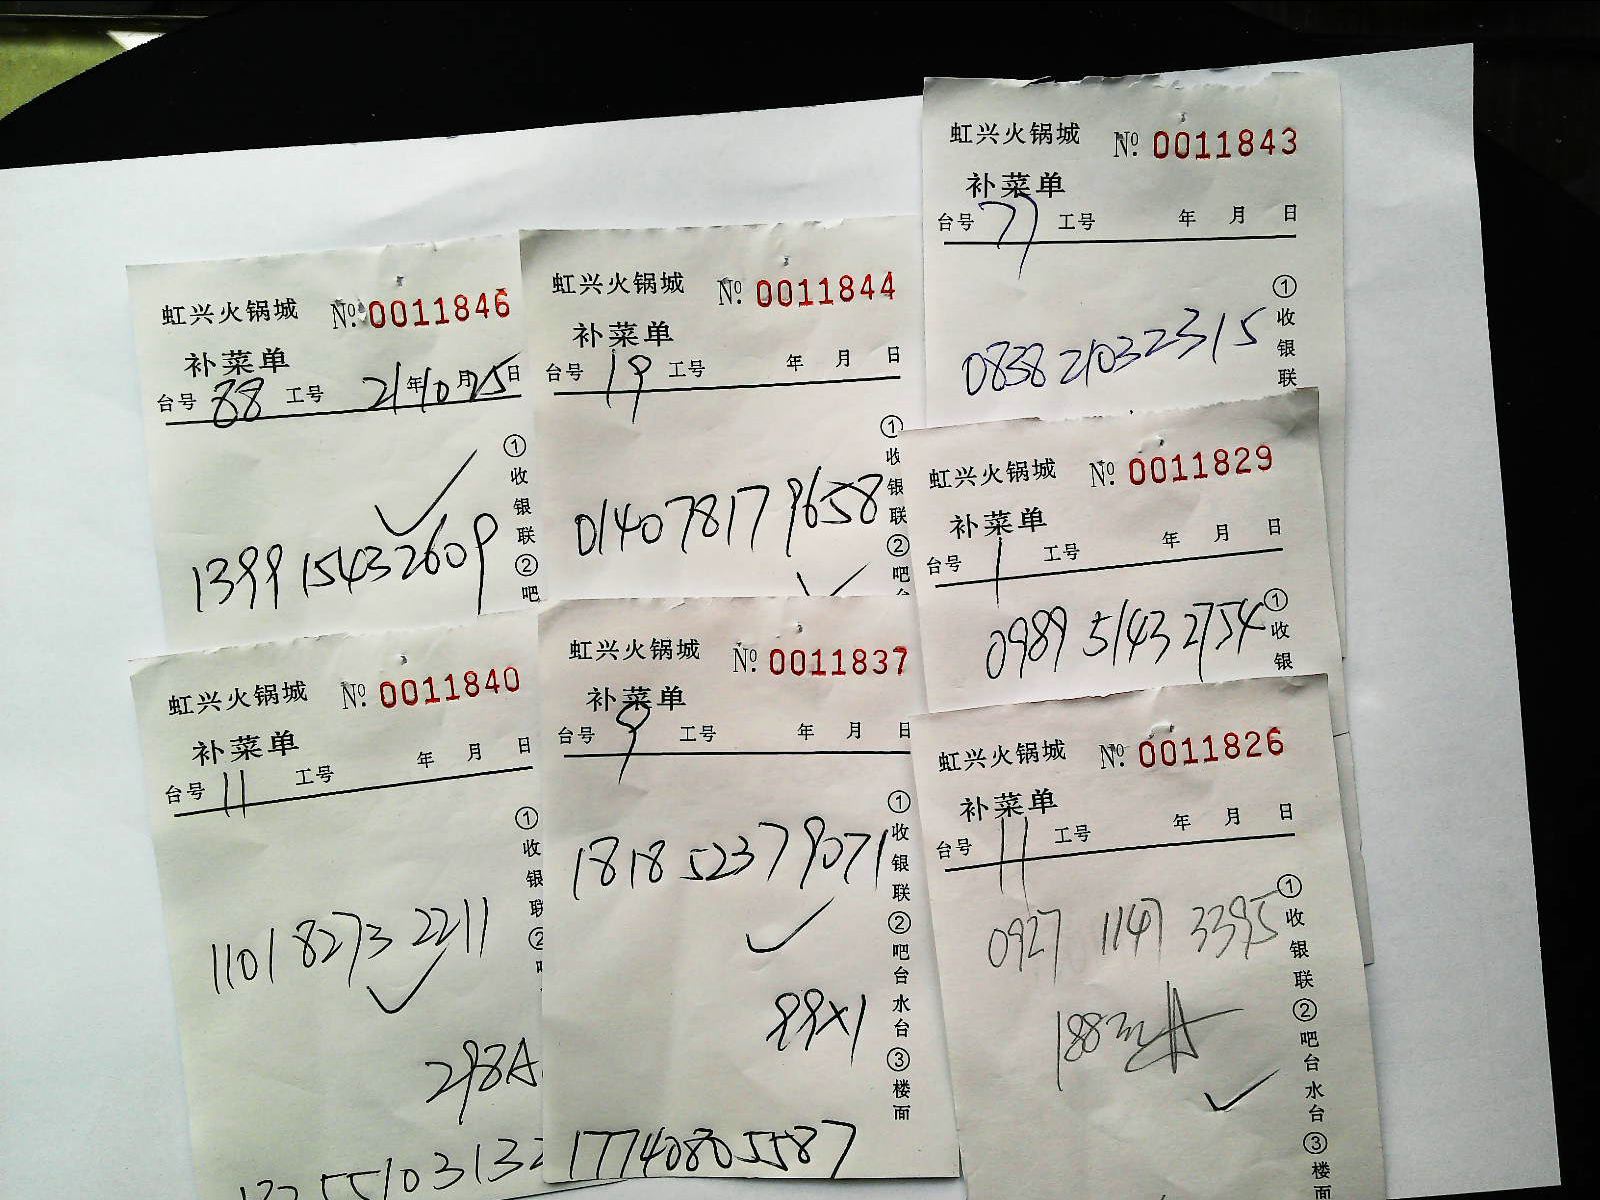 虹兴火锅城 №: 0011846
补菜单
台号 88 工号 21年10月25日
①收银联②吧
1399 1543 2609
虹兴火锅城 №: 0011844
补菜单
台号 19 工号 年 月 日
①收银联②吧台
0140 7817 9658
虹兴火锅城 №: 0011843
补菜单
台号 77 工号 年 月 日
①收银联
0838 2103 2315
虹兴火锅城 №: 0011829
补菜单
台号 1 工号 年 月 日
①收银
0989 5143 2754
虹兴火锅城 №: 0011840
补菜单
台号 11 工号 年 月 日
①收银联②吧
1101 8273 2211
298A
虹兴火锅城 №: 0011837
补菜单
台号 9 工号 年 月 日
①收银联②吧台水台③楼面
1818 5237 9071
99×1
17740805587
虹兴火锅城 №: 0011826
补菜单
台号 11 工号 年 月 日
①收银联②吧台水台③楼面
0927 1147 3395